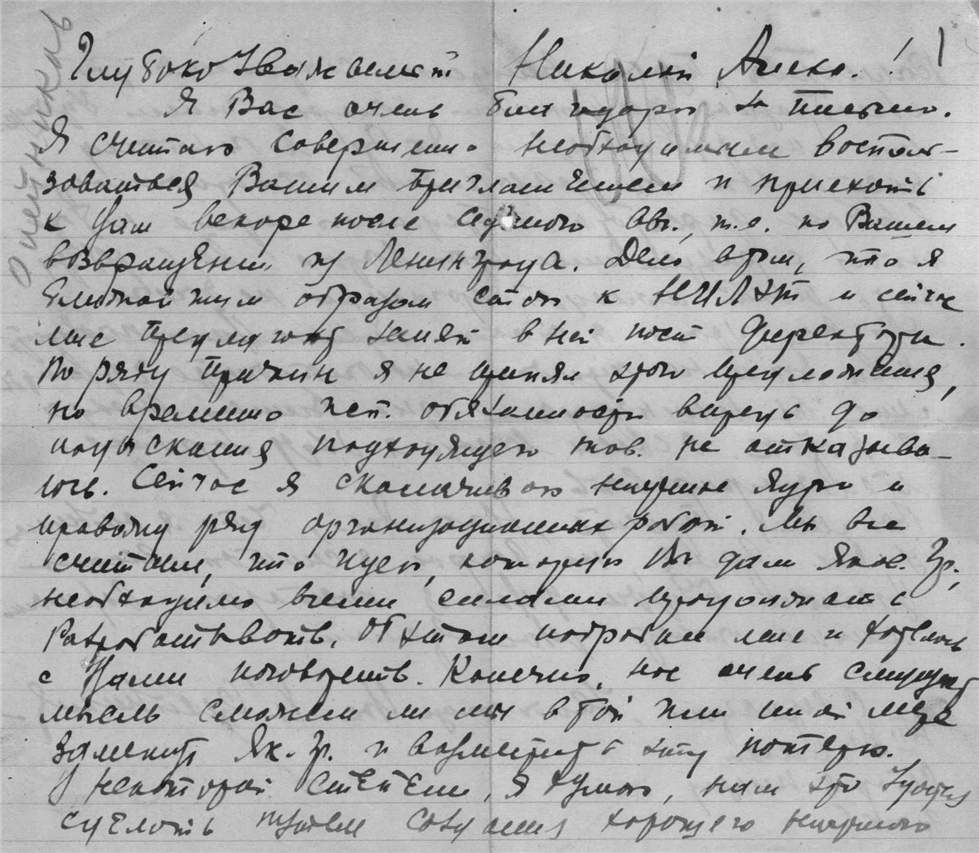 Олейников
Глубокоуважаемый Николай Алекс.!
Я Вас очень благодарю за письмо.
Я считаю совершенно необходимым восполь-
зоваться Вашим приглашением и приехать
к Вам вскоре после седьмого авг., т.е. по Вашем
возвращении из Ленинграда. Дело в том, что я
ближайшим образом стою к НИЛЭТ и сейчас
мне предлагают занять в ней пост директора.
По ряду причин я не принял этого предложения,
но временно исп. обязанности впредь до
подыскания подходящего тов. не отказыва-
юсь. Сейчас я сколачиваю научные ядра и
провожу ряд организационных работ. Мы все
считаем, что идею, которую Вы дали Яков. Гр.,
необходимо всеми силами продолжать
разрабатывать. Об этом подробнее мне и хотелось
с Вами поговорить. Конечно, нас очень смущает
мысль сможем ли мы в той или иной мере
заменить Як. Гр. и возместить эту потерю.
В некоторой степени, я думаю, нам это удастся
сделать путем создания хорошего научного